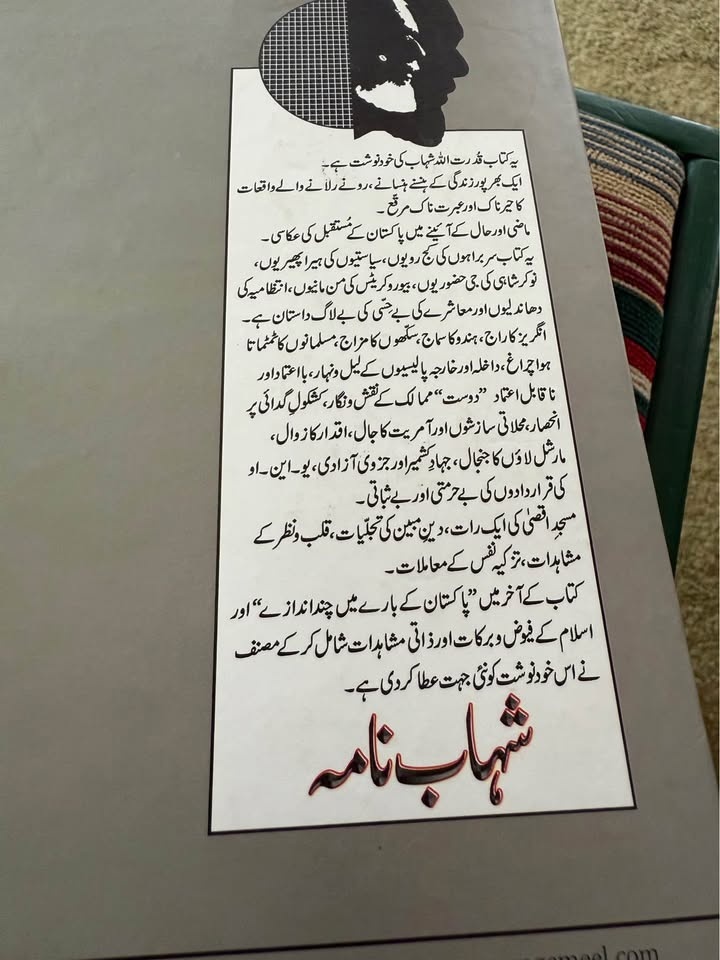 یہ کتاب قدرت اللہ شہاب کی خودنوشت ہے۔
ایک بھرپور زندگی کے ہنسنے ہنسانے، رونے رلانے والے واقعات
کا حیرناک اور عبرت ناک مرقّع۔
ماضی اور حال کے آئینے میں پاکستان کے مُستقبل کی عکاسی۔
یہ کتاب سربراہوں کی کج رویوں، سیاستیوں کی ہیرا پھیریوں،
نوکر شاہی کی جی حضوریوں، بیوروکریٹس کی من مانیوں، انتظامیہ کی
دھاندلیوں اور معاشرے کی بے حِسّی کی بے لاگ داستان ہے۔
انگریز کا راج، ہندو کا سماج، سکّھوں کا مزاج، مسلمانوں کا ٹمٹماتا
ہوا چراغ، داخلہ اور خارجہ پالیسیوں کے لیل و نہار، با اعتماد اور
ناقابل اعتماد ”دوست“ ممالک کے نقش و نگار، کشکولِ گدائی پر
انحصار، محلاتی سازشوں اور آمریت کا جال، اقدار کا زوال،
مارشل لاؤں کا جنجال، جہادِ کشمیر اور جزوی آزادی، یو۔این۔او
کی قراردادوں کی بے حرمتی اور بے ثباتی۔
مسجدِ اقصیٰ کی ایک رات، دینِ مبین کی تجلّیات، قلب و نظر کے
مشاہدات، تزکیہ نفس کے معاملات۔
کتاب کے آخر میں ”پاکستان کے بارے میں چند اندازے“ اور
اسلام کے فیوض و برکات اور ذاتی مشاہدات شامل کر کے مصنف
نے اس خودنوشت کو نئی جہت عطا کر دی ہے۔
شہاب نامہ